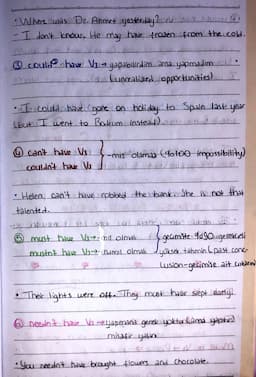 • Where was Dr. Ahmet yesterday?
• I don't know. He may have frozen from the cold.
③ could have V3 → yapabilirdim ama yapmadım
(unrealized opportunities)
• I could have gone on holiday to Spain last year
(but I went to Bodrum instead)
④ can't have V3
couldn't have V3
-mış olamaz (%100 impossibility)
• Helen can't have robbed the bank. She is not that
talented.
⑤ must have V3 → mış olmalı
mustn't have V3 → mamış olmalı
geçmişte %90
yüksek tahmin (past conc-
lusion-geçmişe ait
• Their lights were off. They must have slept
⑥ needn't have V3 → yapmana gerek yoktu (ama yaptın)
• You needn't have brought flowers and chocolate.